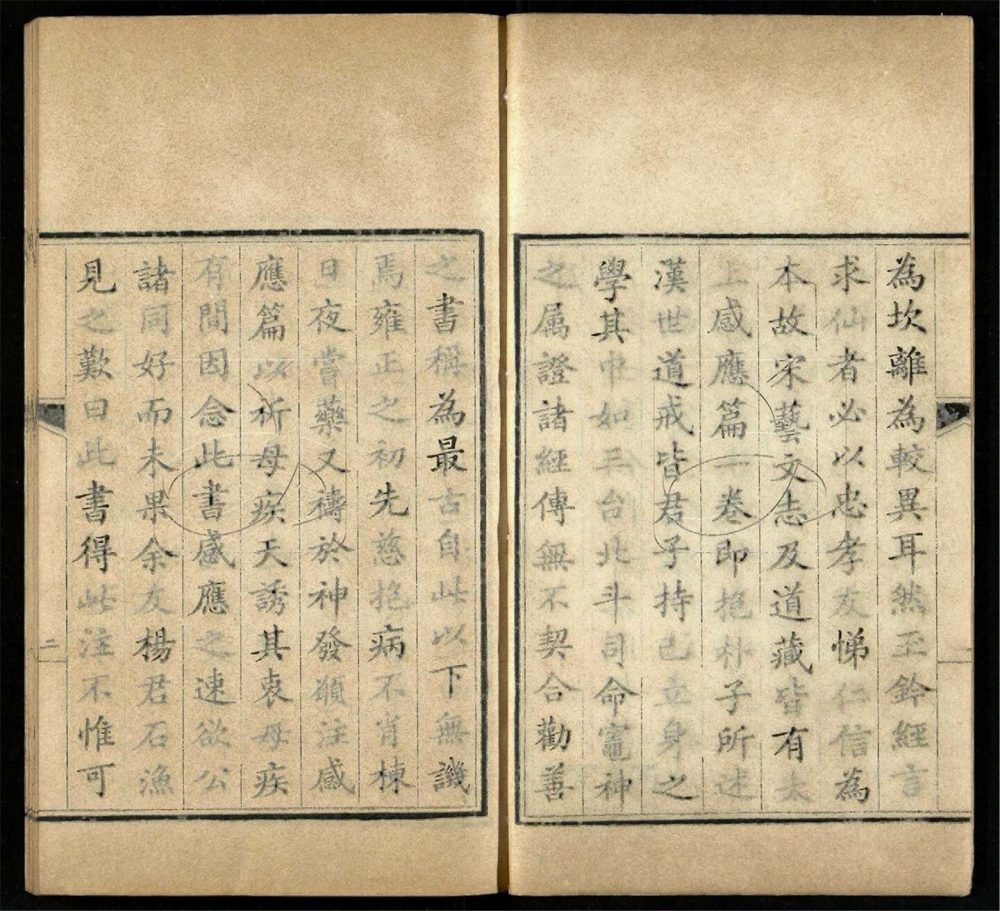 為坎離為較異耳然玉鈐經言
求仙者必以忠孝友悌仁信為
本故宋藝文志及道藏皆有太
上感應篇一卷即抱朴子所述
漢世道戒皆君子持己立身之
學其中如三台北斗司命竈神
之属證諸經傳無不契合勸善
之書稱為最古自此以下無譏
焉雍正之初先慈抱病不肖棟
日夜嘗藥又禱於神發願注感
應篇以祈母疾天誘其衷母疾
有間因念此書感應之速欲公
諸同好而未果余友楊君石漁
見之歎曰此書得此注不惟可
二